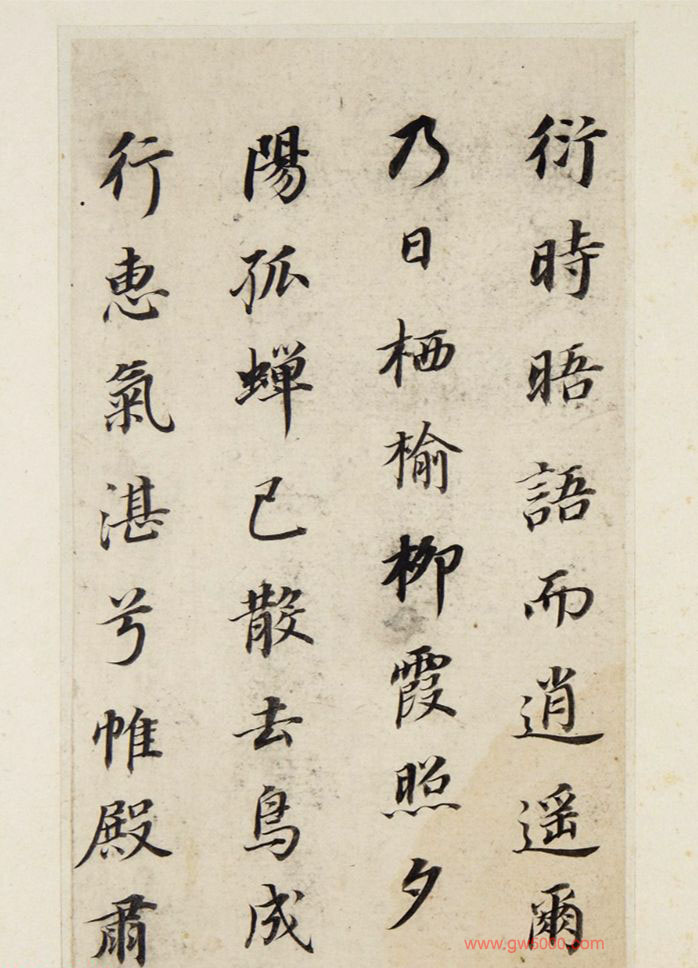 衍時晤語而逍遥爾
乃日栖榆柳霞照夕
陽孤蝉已散去鳥成
行惠氣湛兮帷殿肅
www.gw5000.com